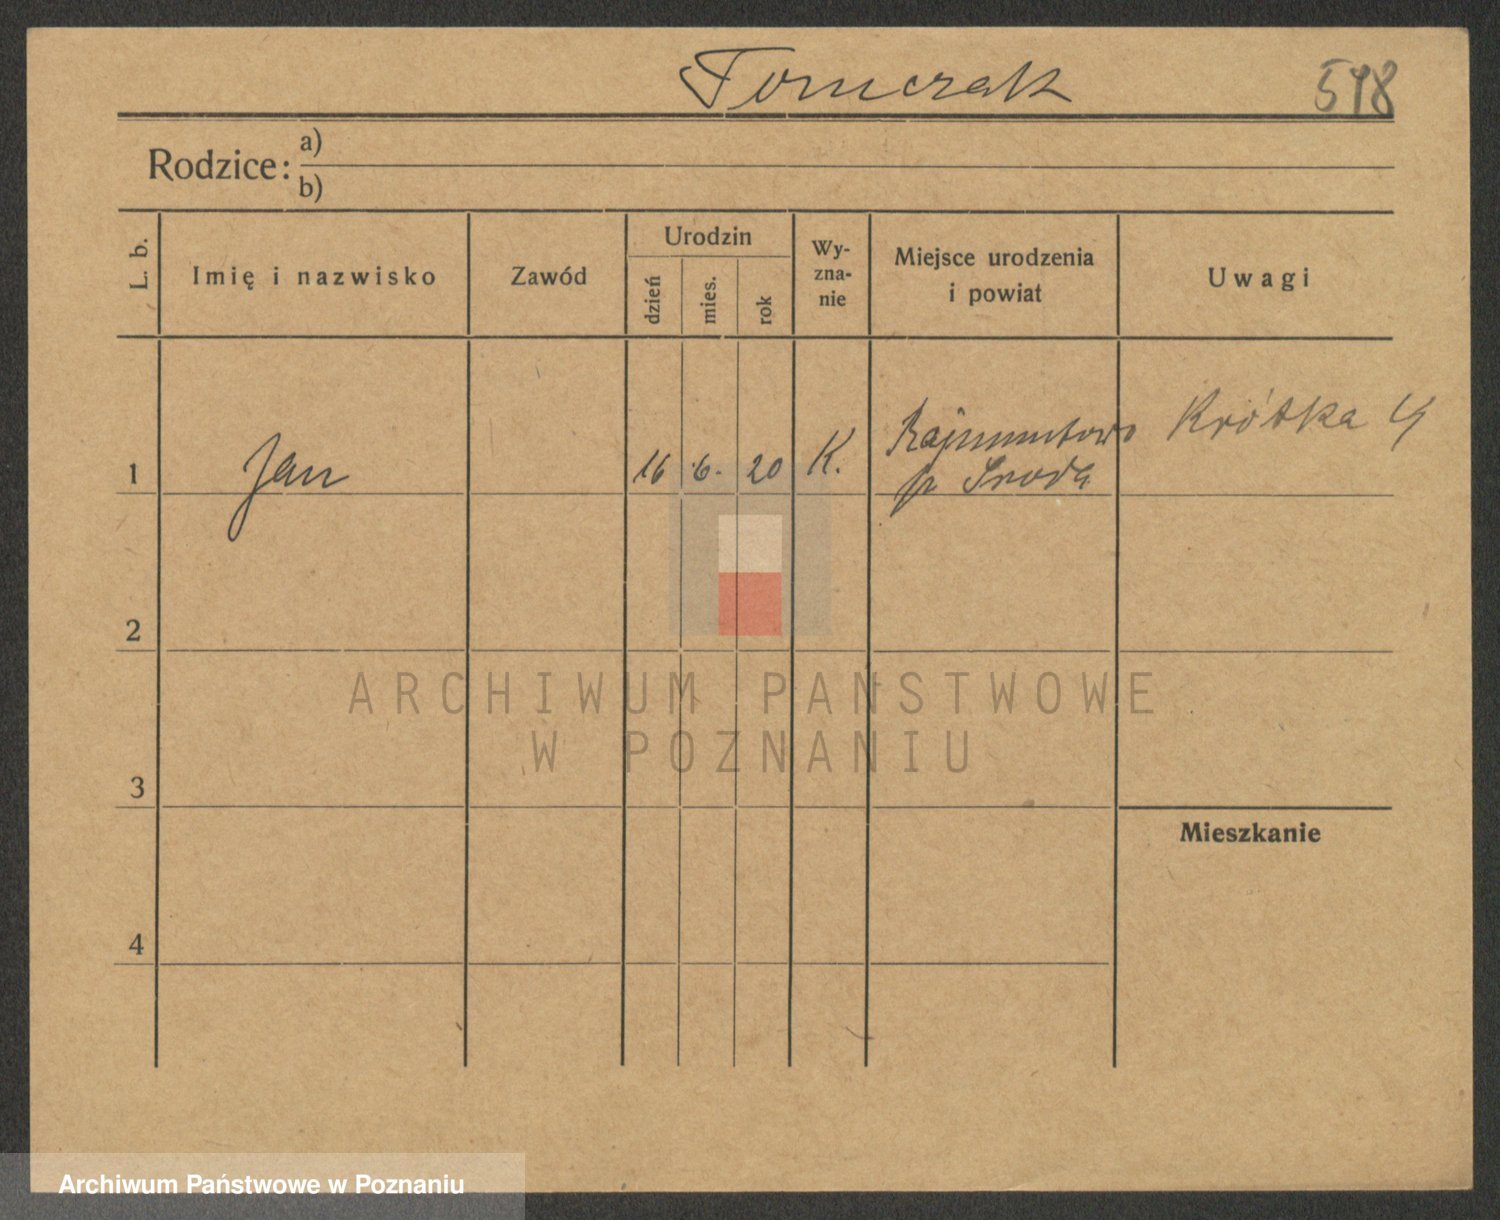 Tomczak 548
Rodzice: a)
b)
L. b.
Imię i nazwisko
Zawód
Urodzin
dzień
mies.
rok
Wy-
zna-
nie
Miejsce urodzenia
i powiat
Uwagi
1 Jan 16 6. 20 K. Rajmuntowo Krótka 4
p Sroda
2
3
Mieszkanie
4
ARCHIWUM PAŃSTWOWE
W POZNANIU
Archiwum Państwowe w Poznaniu